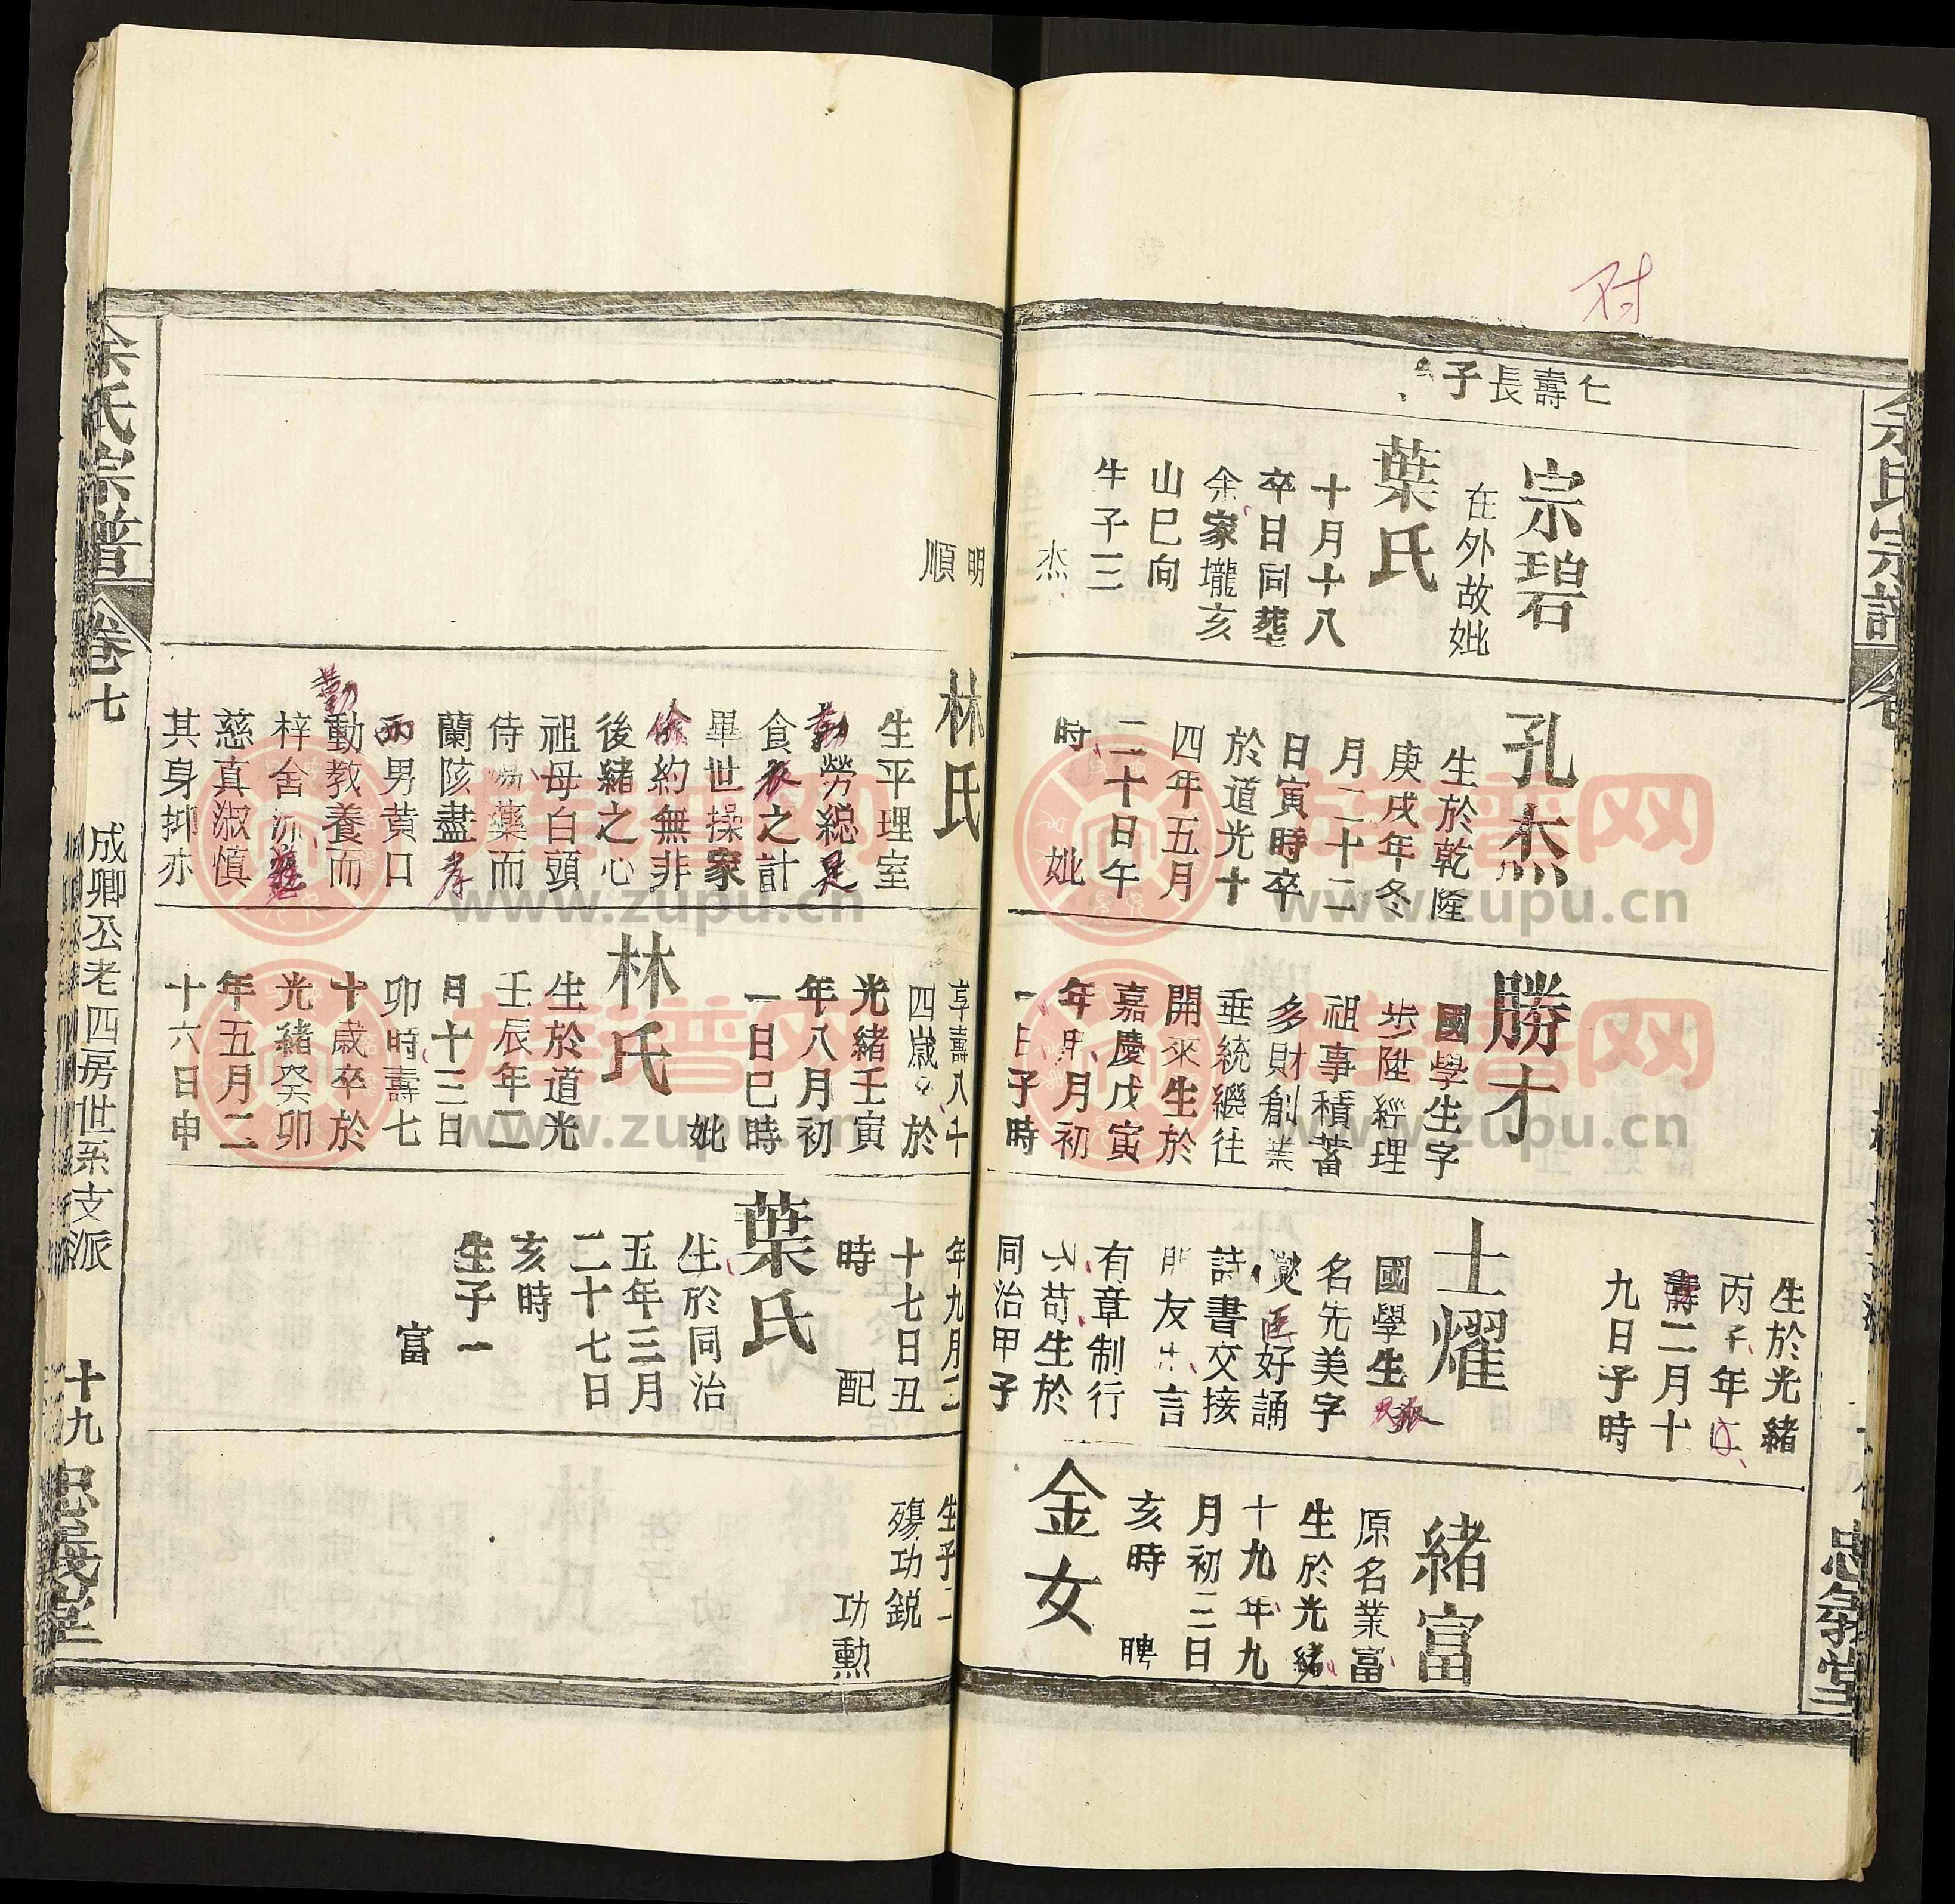 对
余氏宗譜
忠義堂
仁
壽
長
子
宗碧
在外故妣
葉氏
十月十八
卒日同葬
余家壠亥
山巳向
生子三
杰
孔杰
生於乾隆
庚戌年冬
月二十二
日寅時卒
於道光十
四年五月
二十日午
時 妣
勝才
國學生字
步陞經理
祖事積蓄
多財創業
垂統繼往
開來生於
嘉慶戊寅
年 月初
日子時
生於光緒
丙子年
壽二月十
九日子時
士耀
國學生派
名先美字
好誦
詩書交接
朋友 言
有章制行
不苟生於
同治甲子
緒富
原名業富
生於光緒
十九年九
月初二日
亥時 聘
金女
明
順
林氏
生平理室
勤勞總是
食衣之計
畢世操家
儉約無非
後緒之心
祖母白頭
侍湯藥而
蘭陔盡孝
兩男黄口
勤
動教養而
梓舍流
慈真淑慎
其身抑亦
享壽八十
四歲卒於
光緒壬寅
年八月初
一日巳時
妣
林氏
生於道光
壬辰年二
月十三日
卯時壽七
十歲卒於
光緒癸卯
年五月二
十六日申
年九月二
十七日丑
時 配
葉氏
生於同治
五年三月
二十七日
亥時
生子一
富
生子二
殤功銳
功勳
余氏宗譜
卷七
成卿公老四房世系支派
十九
忠義堂
族谱网
www.zupu.cn
族谱网
www.zupu.cn
族谱网
www.zupu.cn
族谱网
www.zupu.cn